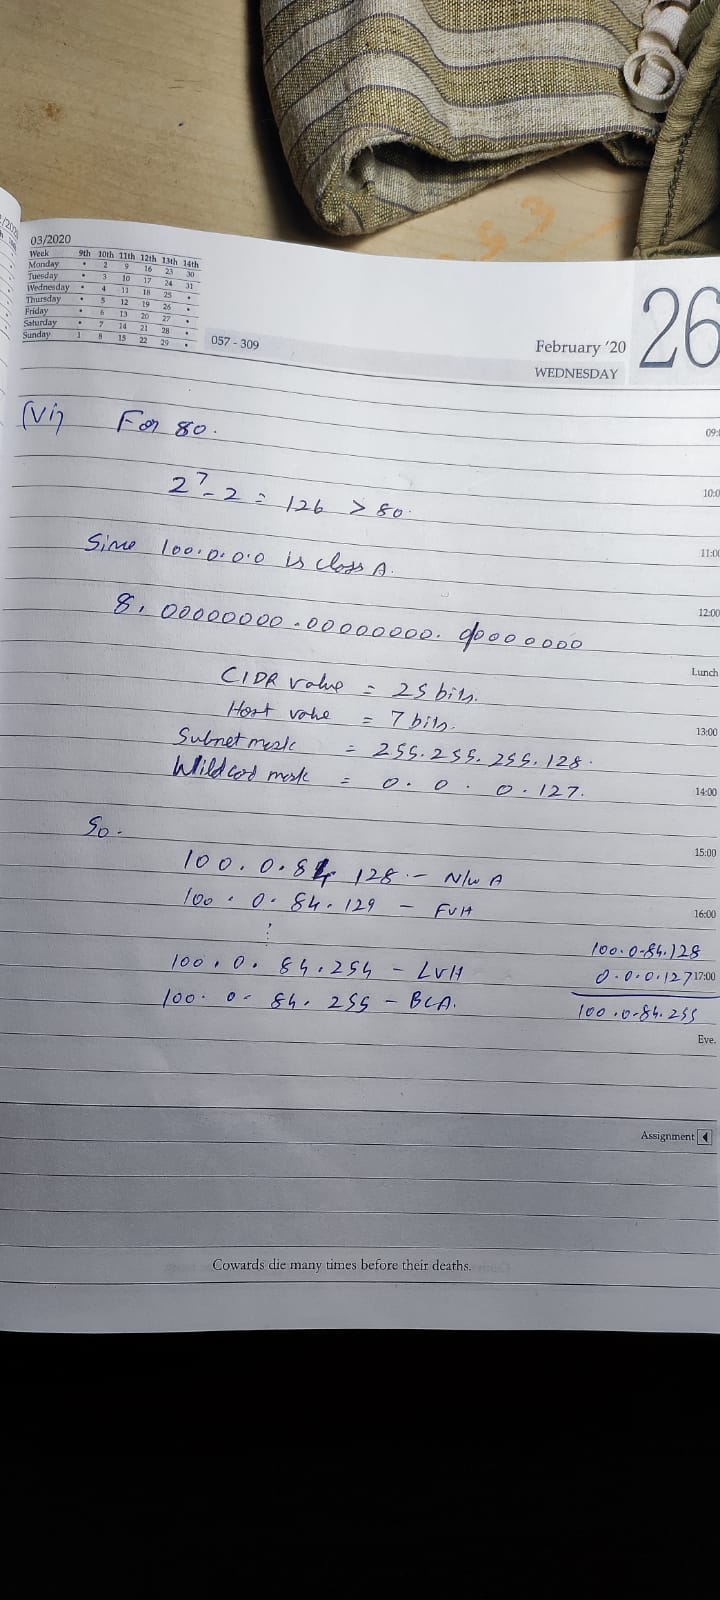 03/2020
Week 9th 10th 11th 12th 13th 14th
Monday • 2 9 16 23 30
Tuesday • 3 10 17 24 31
Wednesday • 4 11 18 25 •
Thursday • 5 12 19 26 •
Friday • 6 13 20 27 •
Saturday • 7 14 21 28 •
Sunday 1 8 15 22 29 •
057 - 309
February '20 26
WEDNESDAY
(Vi) For 80.
09:
2^7 - 2 = 126 > 80.
10:0
Since 100.0.0.0 is class A.
11:00
8. 00000000.00000000. 00000000
12:00
Lunch
CIDR value = 25 bits.
Host value = 7 bits.
13:00
Subnet mask = 255.255.255.128.
Wildcard mask = 0. 0. 0. 127.
14:00
So.
15:00
100. 0. 84. 128 - N/w A
100. 0. 84. 129 - FVH
16:00
⋮
100. 0. 84. 254 - LVH
100. 0. 84. 255 - BCA.
100.0.84.128
0.0.0.127
17:00
100.0.84.255
Eve.
Assignment
Cowards die many times before their deaths.